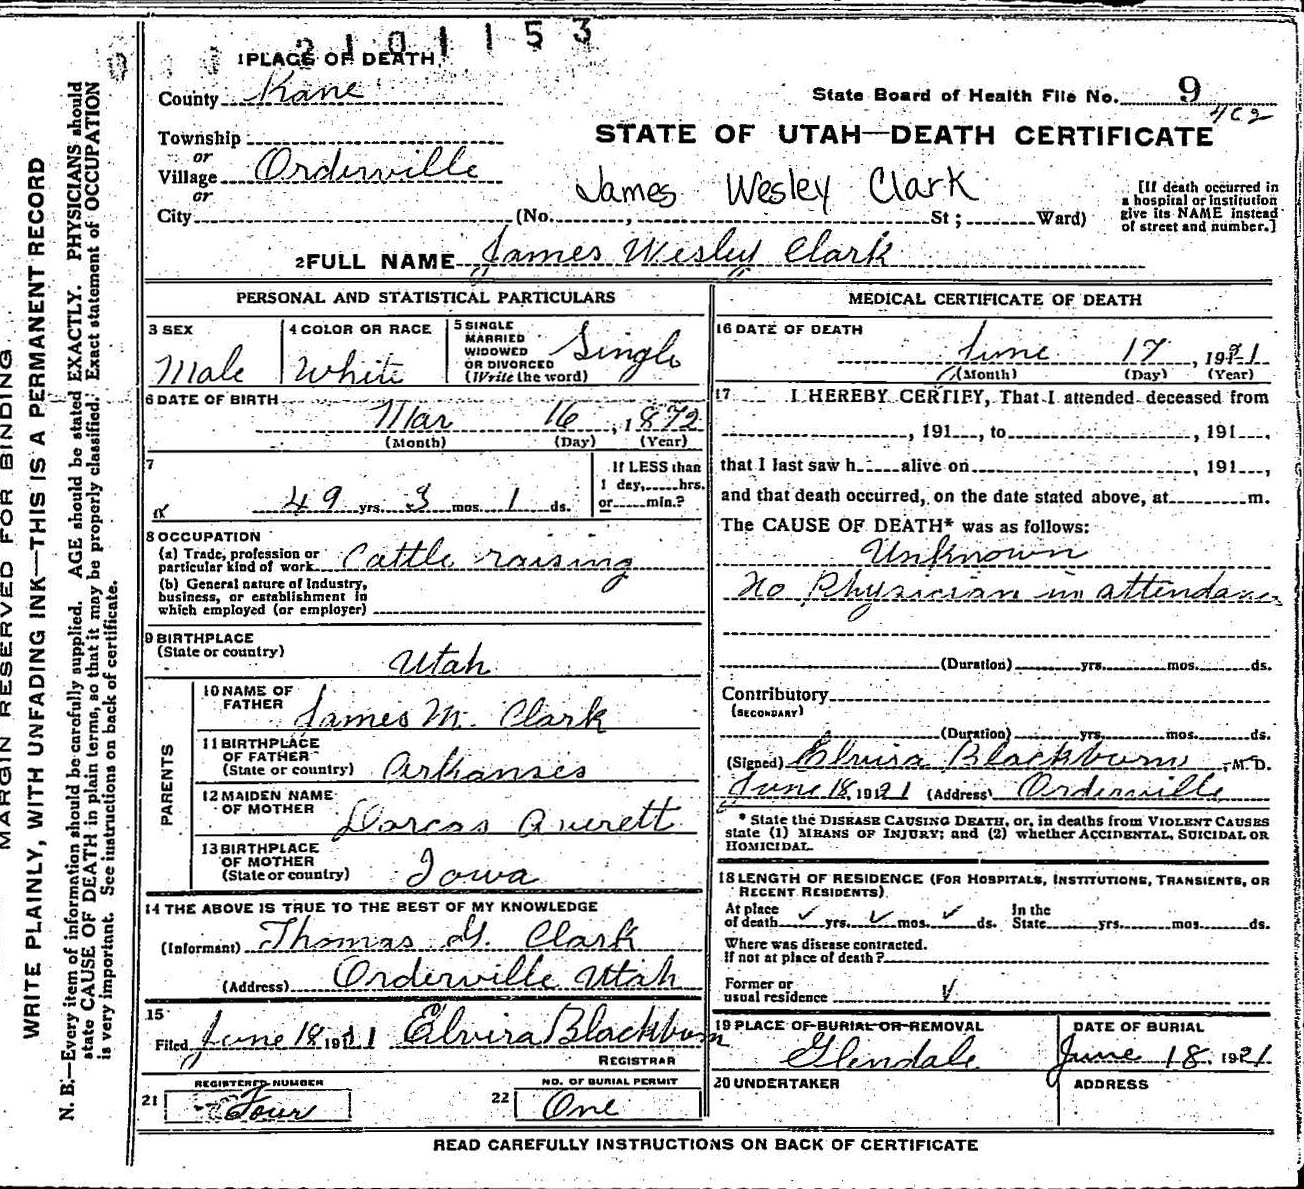 2101153
1 PLACE OF DEATH
County Kane
State Board of Health File No. 9
402
Township
or
Village Orderville
or
City (No. , St; Ward)
STATE OF UTAH—DEATH CERTIFICATE
James Wesley Clark
[If death occurred in
a hospital or institution
give its NAME instead
of street and number.]
2 FULL NAME James Wesley Clark
PERSONAL AND STATISTICAL PARTICULARS
3 SEX
Male
4 COLOR OR RACE
White
5 SINGLE
MARRIED
WIDOWED
OR DIVORCED
(Write the word)
Single
6 DATE OF BIRTH
Mar 16, 1872
(Month) (Day) (Year)
7
49 yrs. 3 mos. 1 ds.
If LESS than
1 day, hrs.
or min.?
8 OCCUPATION
(a) Trade, profession or
particular kind of work Cattle raising
(b) General nature of Industry,
business, or establishment in
which employed (or employer)
9 BIRTHPLACE
(State or country)
Utah
PARENTS
10 NAME OF
FATHER James M. Clark
11 BIRTHPLACE
OF FATHER
(State or country) Arkansis
12 MAIDEN NAME
OF MOTHER Dorcas Averett
13 BIRTHPLACE
OF MOTHER
(State or country) Iowa
14 THE ABOVE IS TRUE TO THE BEST OF MY KNOWLEDGE
(Informant) Thomas G. Clark
(Address) Orderville Utah
15
Filed June 18 1921 Elvira Blackburn
REGISTRAR
21 REGISTERED NUMBER
Four
22 NO. OF BURIAL PERMIT
One
MEDICAL CERTIFICATE OF DEATH
16 DATE OF DEATH
June 17, 1921
(Month) (Day) (Year)
17 I HEREBY CERTIFY, That I attended deceased from
, 191 , to , 191 .
that I last saw h alive on , 191 ,
and that death occurred, on the date stated above, at m.
The CAUSE OF DEATH* was as follows:
Unknown
No Physician in attendance
(Duration) yrs. mos. ds.
Contributory
(SECONDARY)
(Duration) yrs. mos. ds.
(Signed) Elvira Blackburn, M. D.
June 18, 1921 (Address) Orderville
* State the DISEASE CAUSING DEATH, or, in deaths from VIOLENT CAUSES
state (1) MEANS OF INJURY; and (2) whether ACCIDENTAL, SUICIDAL OR
HOMICIDAL.
18 LENGTH OF RESIDENCE (FOR HOSPITALS, INSTITUTIONS, TRANSIENTS, OR
RECENT RESIDENTS)
At place
of death yrs. mos. ds. In the
State yrs. mos. ds.
Where was disease contracted.
If not at place of death?
Former or
usual residence
19 PLACE OF BURIAL OR REMOVAL
Glendale
DATE OF BURIAL
June 18, 1921
20 UNDERTAKER
ADDRESS
READ CAREFULLY INSTRUCTIONS ON BACK OF CERTIFICATE
MARGIN RESERVED FOR BINDING
WRITE PLAINLY, WITH UNFADING INK—THIS IS A PERMANENT RECORD
N. B.—Every item of information should be carefully supplied. AGE should be stated EXACTLY. PHYSICIANS should
state CAUSE OF DEATH in plain terms, so that it may be properly classified. Exact statement of OCCUPATION
is very important. See instructions on back of certificate.